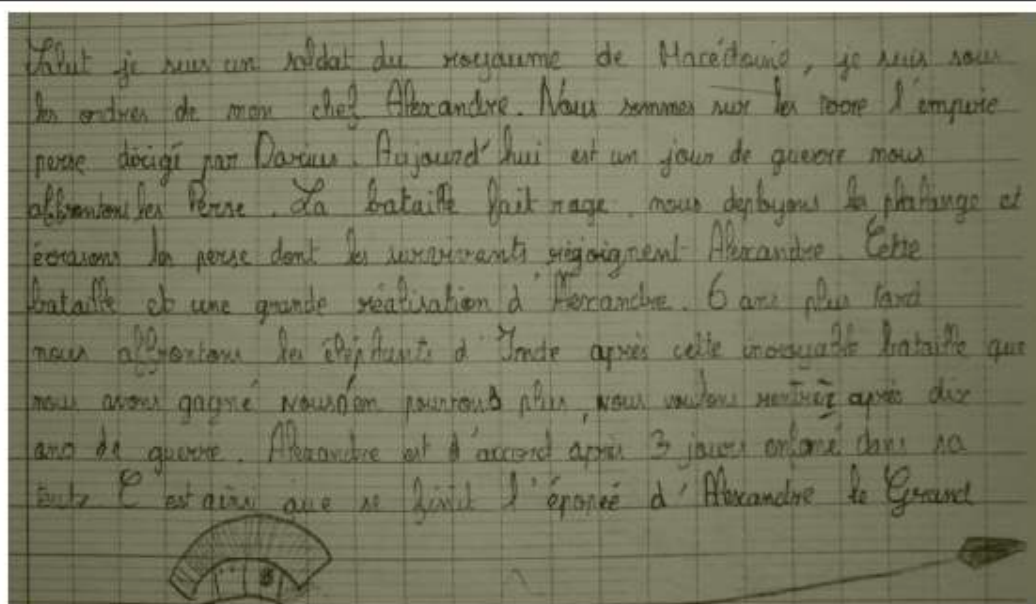 Salut je suis un soldat du royaume de Macédoine, je suis sous
les ordres de mon chef Alexandre. Nous sommes sur les l'empire
perse dirigé par Darius. Aujourd'hui est un jour de guerre nous
affrontons les Perse. La bataille fait rage, nous deployons la phalange et
écrasons les perse dont les survivants réjoignent Alexandre. Cette
bataille et une grande réalisation d'Alexandre. 6 ans plus tard
nous affrontons les éléphants d'Inde après cette incroyable bataille que
nous avons gagné nous n'en pouvons plus, nous voulons rentrez après dix
ans de guerre. Alexandre est d'accord après 3 jours enfermé dans sa
C'est ainsi que se finit l'époneé d'Alexandre le Grand